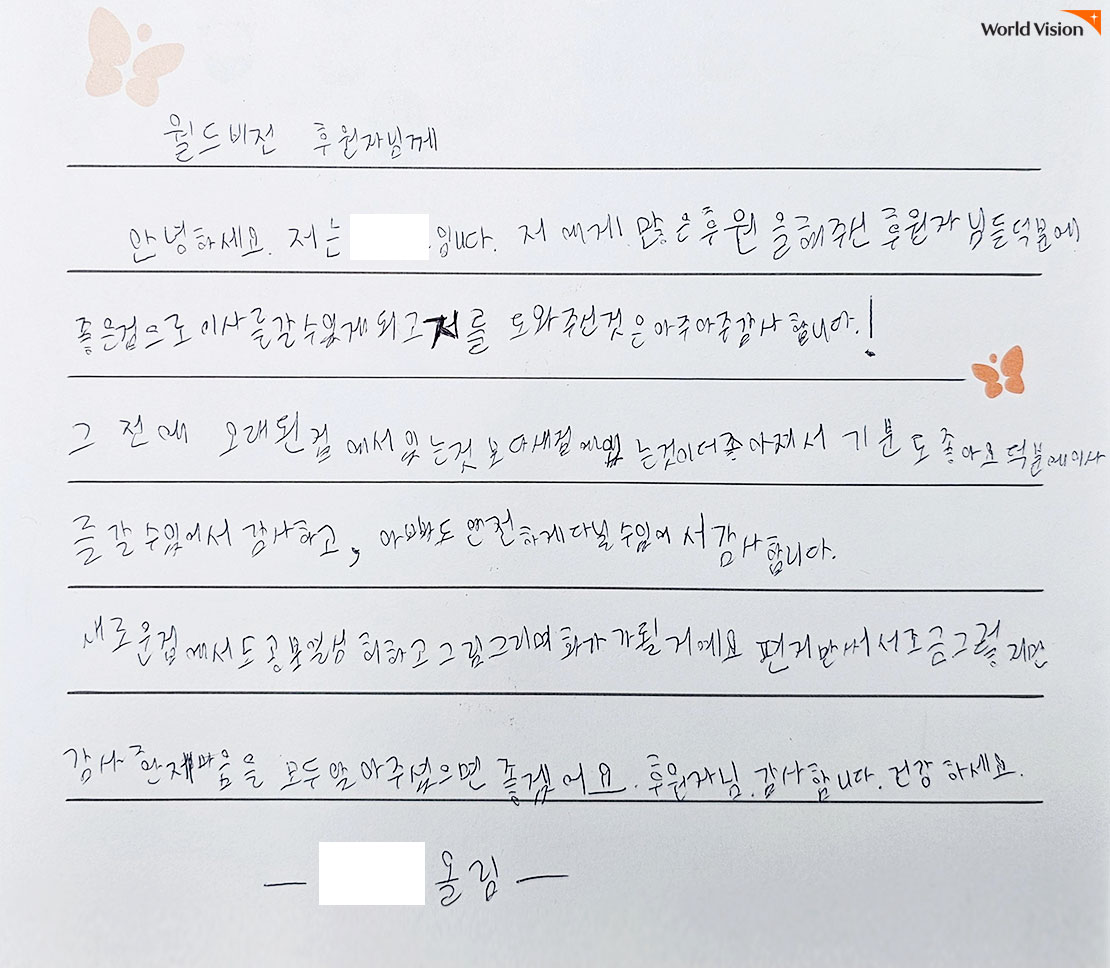 World Vision
월드비전 후원자님께
안녕하세요. 저는 입니다. 저에게 많은 후원을 해주신 후원자님들덕분에
좋은집으로 이사를 갈 수 있게 되고 저를 도와주신것은 아주아주감사합니다.!
그 전에 오래된 집에서 있는것 보다 새집에 있는것이 더 좋아져서 기분도 좋아요 덕분에 이사
를 갈 수 있어서 감사하고, 아빠도 안전하게 다닐 수 있어서 감사합니다.
새로운집에서도 공부열심히하고 그림그리며 화가가 될거에요 편지만써서 조금그렇지만
감사한 제마음을 모두 알아주셨으면 좋겠어요. 후원자님 감사합니다. 건강하세요.
— 올림 —